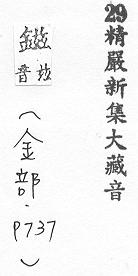 29精嚴新集大藏音
音兹
（金部．P737）